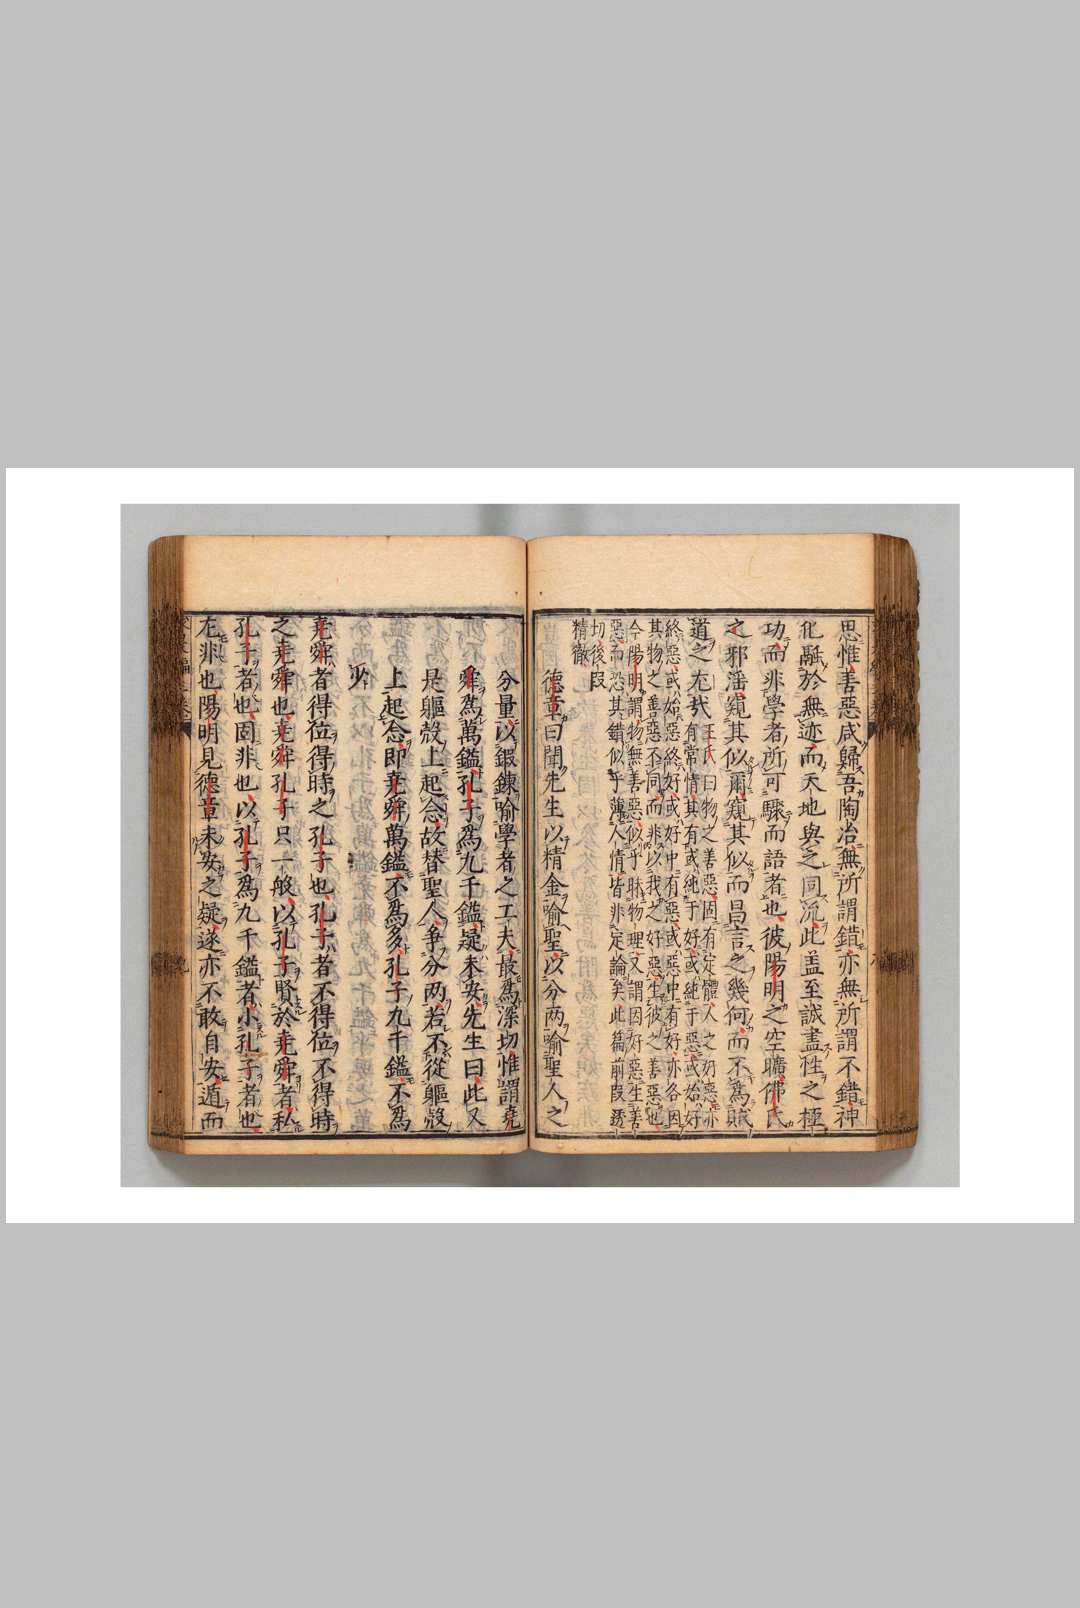 思惟善惡咸歸吾陶冶無所謂錯亦無所謂不錯神
化融於無迹而天地與之同流此盖至誠盡性之極
功而非學者所可驟而語者也彼陽明之空曠佛氏
之邪滛窺其似爾窺其似而昌言之幾何而不爲賊
道之尤㦲
王氏曰物之善惡固有定體人之好惡亦
有常情其有或純于好或純于惡或始好
終惡或始惡終好或好中有惡或惡中有好亦各因
其物之善惡不同而非以我之好惡生彼之善惡也
今陽明謂物無善惡似乎昧物理又謂因好惡生善
惡而恐其錯似乎薄人情皆非定論矣此篇前段透
切後段
精徹
德章曰聞先生以精金喻聖以分两喻聖人之
分量以鍜鍊喻學者之工夫最爲深切惟謂堯
舜爲萬鎰孔子爲九千鎰疑未安先生曰此又
是軀殼上起念故替聖人争分两若不從軀殼
上起念即堯舜萬鎰不爲多孔子九千鎰不爲
少
堯舜者得位得時之孔子也孔子者不得位不得時
之堯舜也堯舜孔子只一般以孔子賢於堯舜者私
孔子者也固非也以孔子爲九千鎰者小孔子者也
尤非也陽明見德章未安之疑遂亦不敢自安遁而